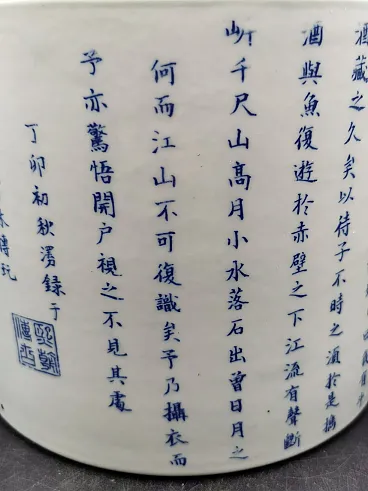 酒藏之久矣以待子不時之須於是攜
酒與魚復遊於赤壁之下江流有聲斷
岸千尺山高月小水落石出曾日月之
何而江山不可復識矣予乃攝衣而
予亦驚悟開户視之不見其處
丁卯初秋漫錄于
博玩